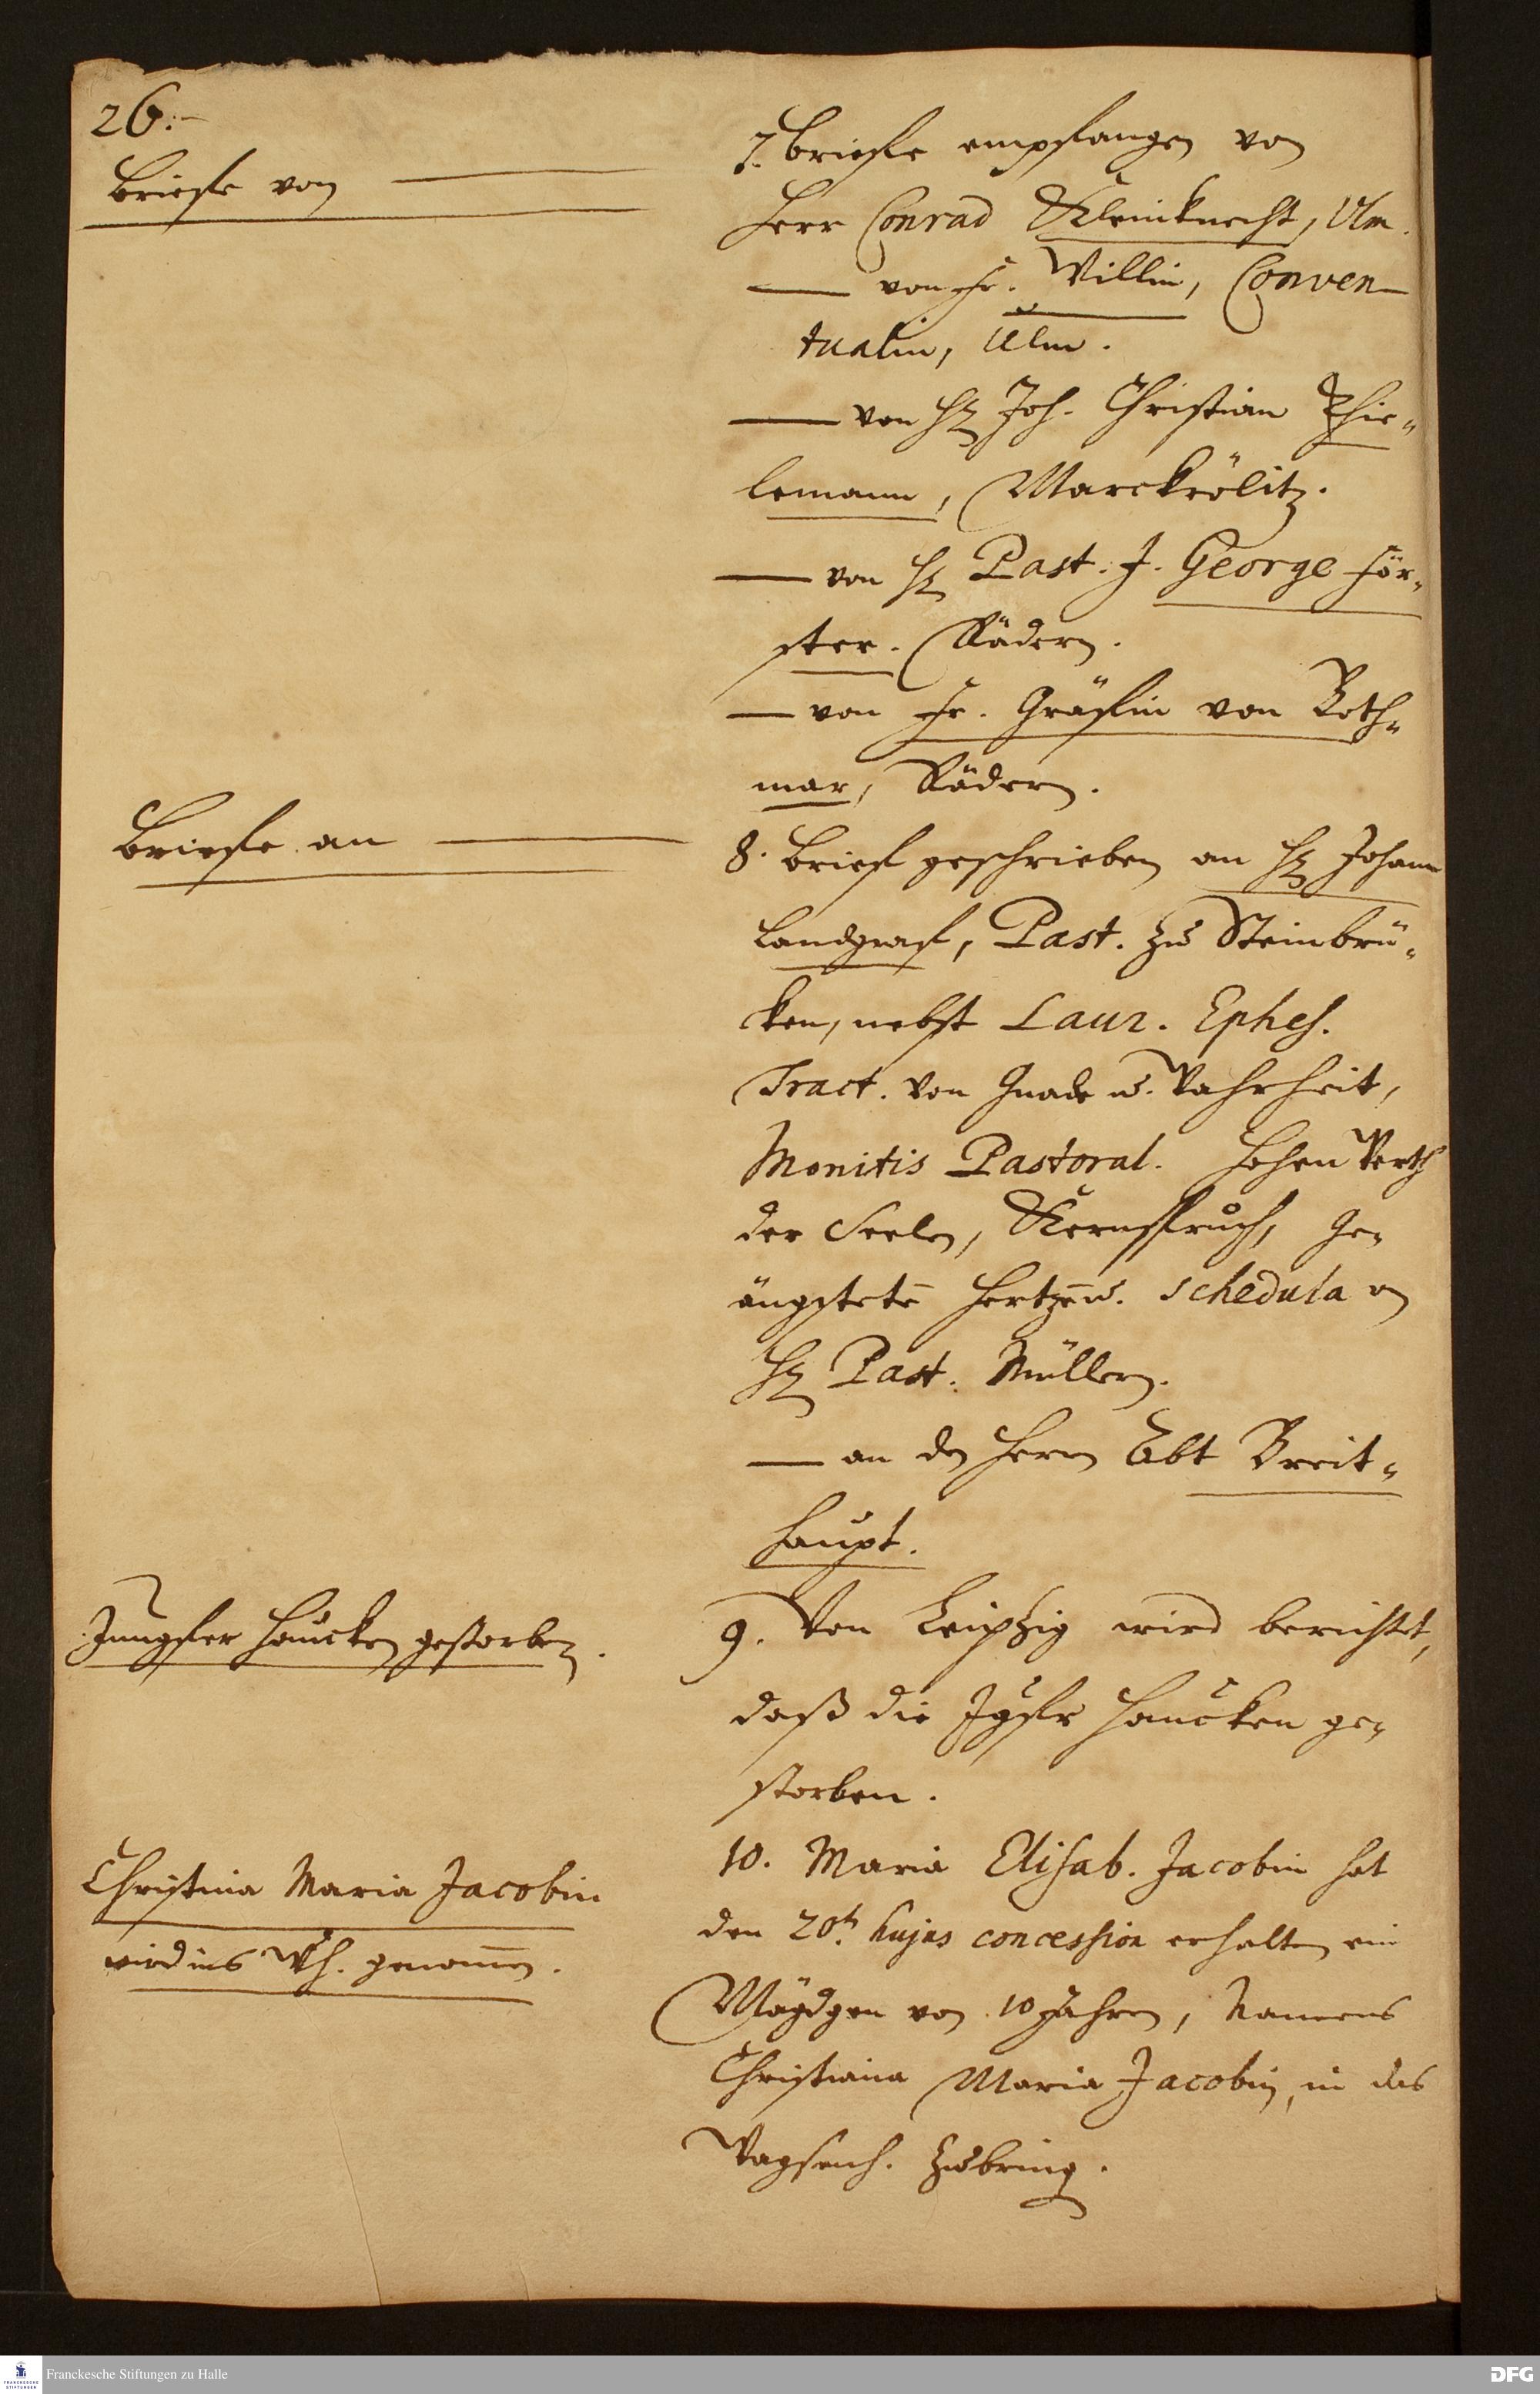 26.
Briefe von
7. Briefe empfangen von
Herr Conrad Kleinknecht, Ulm.
— von Fr. Willin, Conven-
tualin, Ulm.
— von H. Joh. Christian Thie-
lemann, Marckrölitz.
— von H. Past. J. George För-
ster. Rädern.
— von Fr. Gräfin von Both-
mar, Rädern.
Briefe an
8. Brief geschrieben an H. Johann
Landgraf, Past. zu Steinbrü-
cken, nebst Laur. Ephes.
Tract. von Gnade u. Wahrheit,
Monitis Pastoral. Hohen Werth
der Seelen, Kernspruch, Ge-
ängstete Hertzen u. schedula an
H. Past. Müllern.
— an den Herrn Abt Breit-
haupt.
Jungfer Haucken gestorben.
9. Von Leipzig wird berichtet,
daß die Jgfr Haucken ge-
storben.
Christina Maria Jacobin
wird ins Wh. genommen.
10. Maria Elisab. Jacobin hat
den 20t. hujus concession erhalten ein
Mägdgen von 10 Jahren, Namens
Christiana Maria Jacobin, in das
Waysenh. zu bring.
Franckesche Stiftungen zu Halle
FRANCKESCHE
STIFTUNGEN
DFG